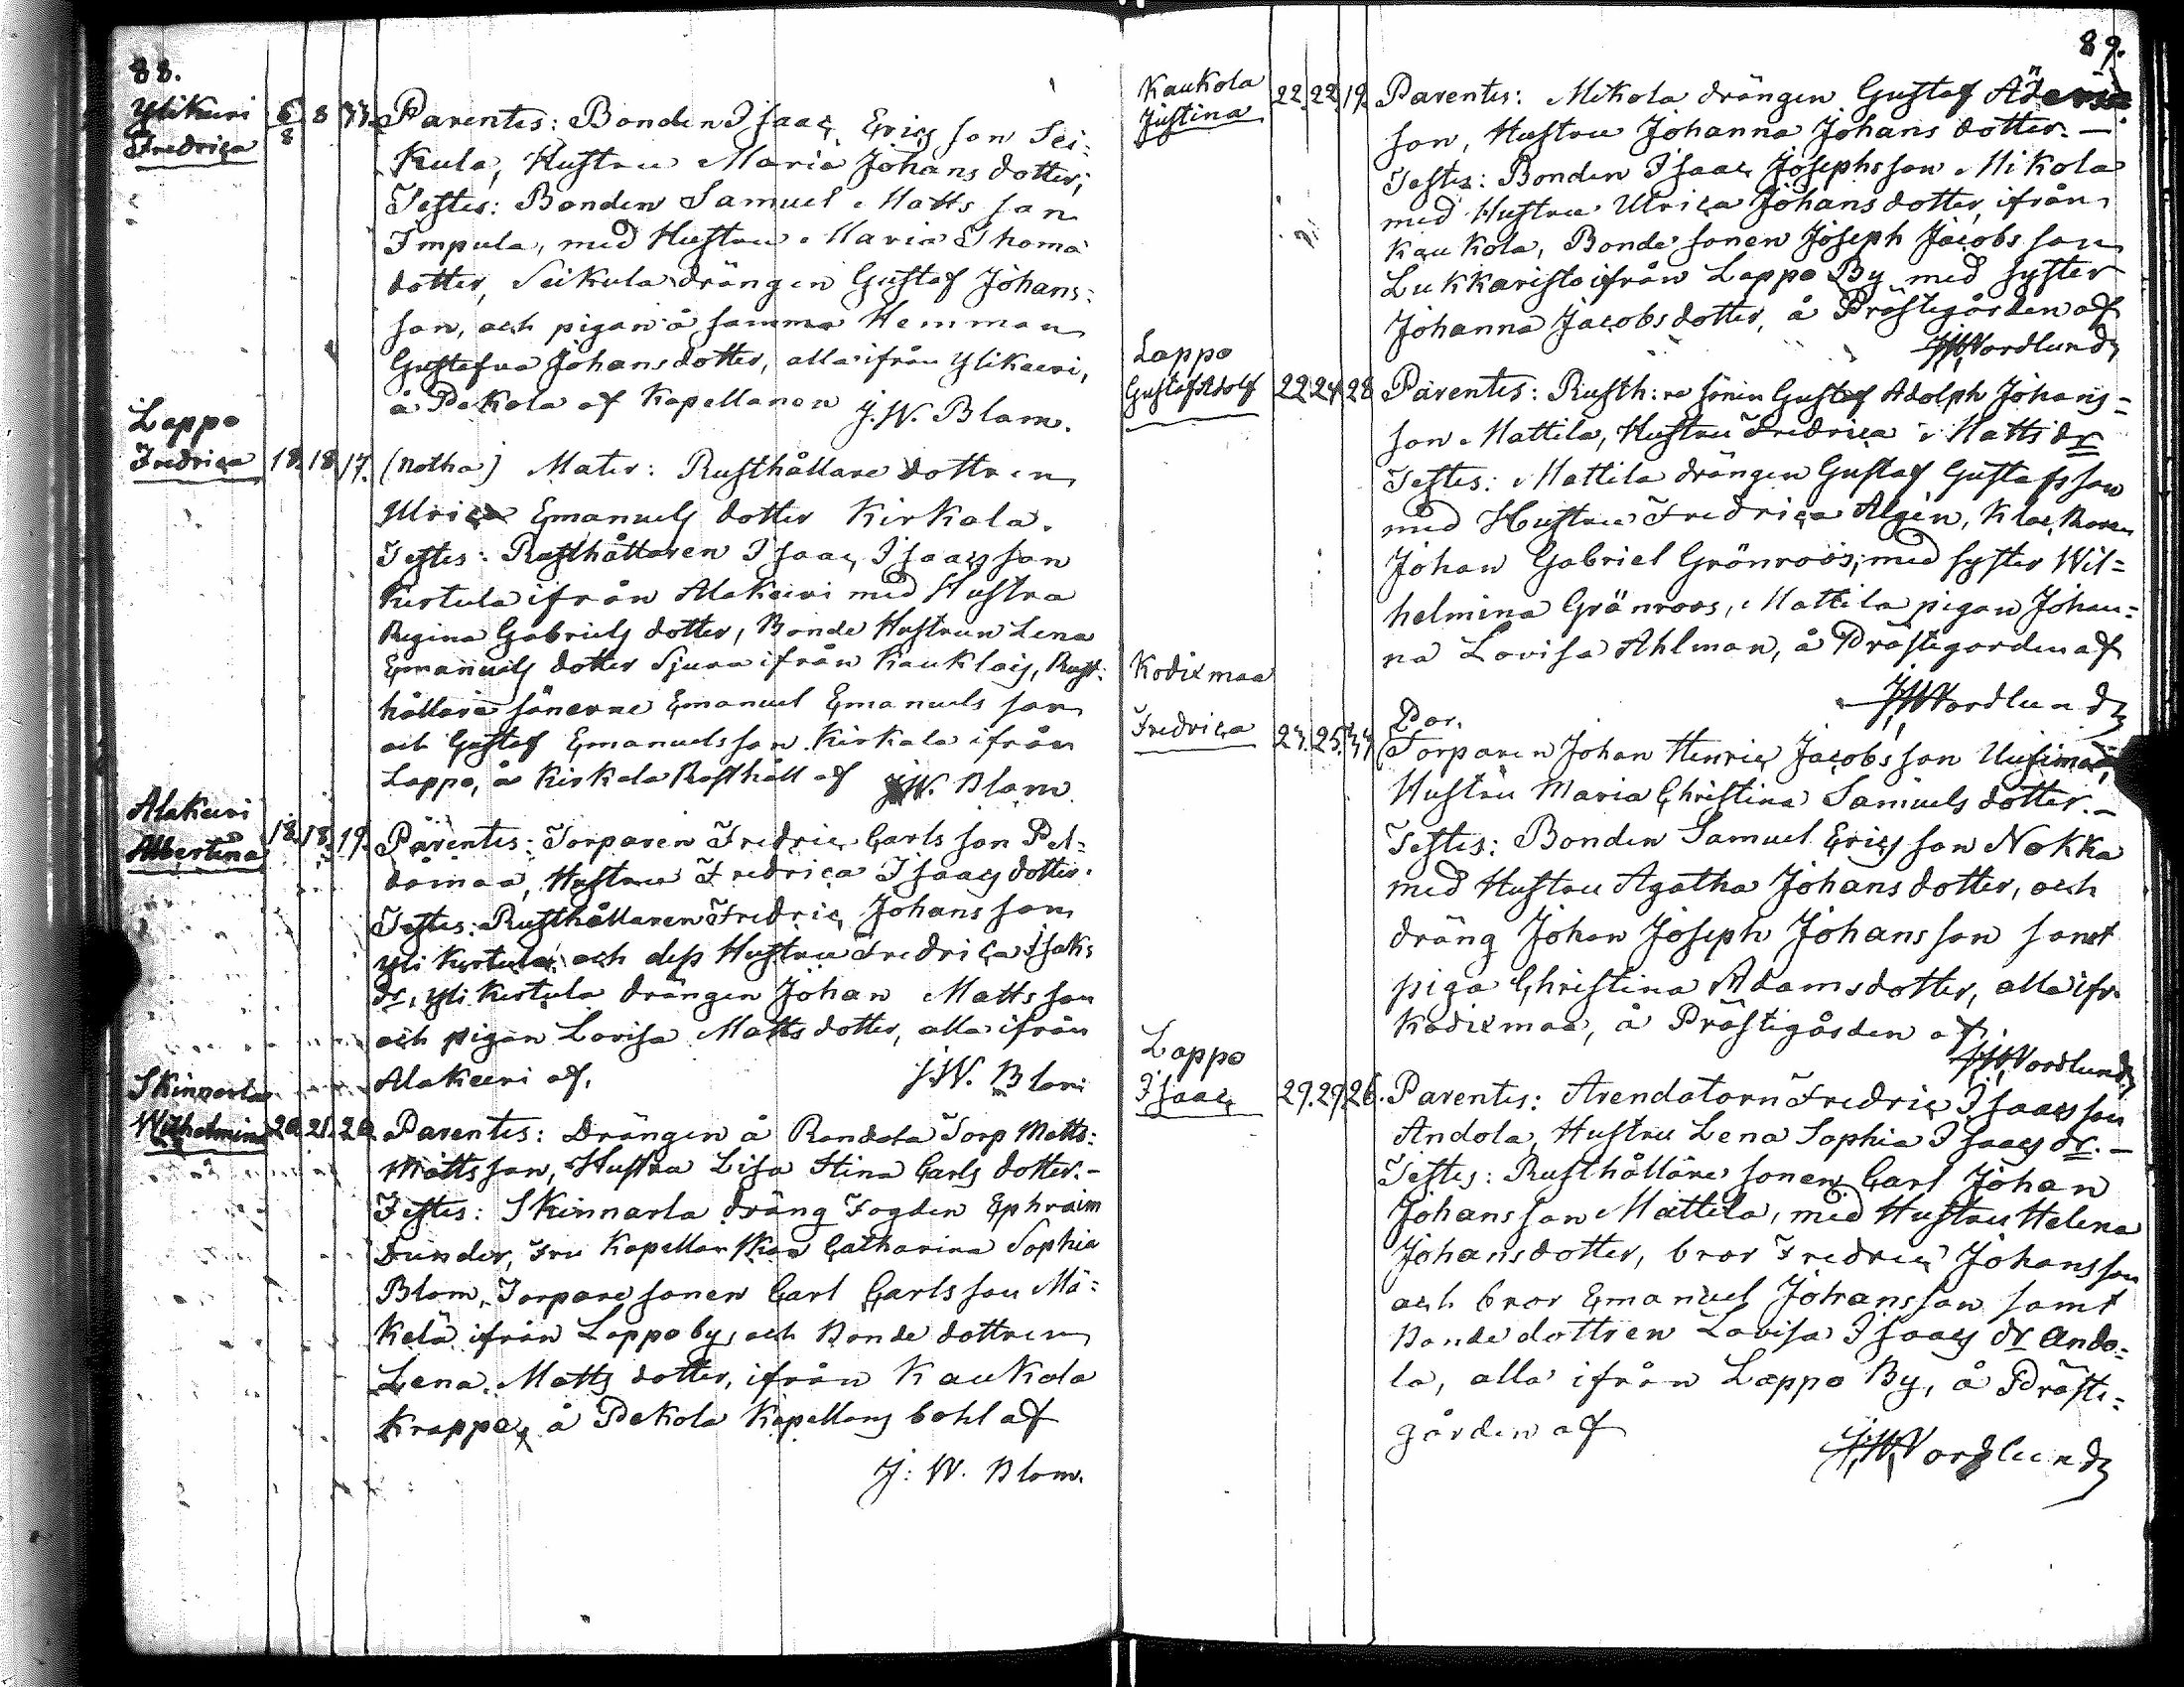 88.
Ylikeivi
Fredrica
6/8 8 33.
Parentes: Bonden Isaac Ericsson Sei:
Kula, Hustru Maria Johans dotter;
Testes: Bonden Samuel Matts son
Impula, med Hustru Maria Thomæ
dotter, Seikula drängen Gustaf Johans:
son, och pigan å samma Hemman
Gustafva Johansdotter, alla ifrån Ylikeivi,
å Pekola af Kapellanen J. W. Blom.
Lappo
Fredrica 18. 18. 17.
(Notha) Mater: Rusthållare dottren
Ulrica Emanuels dotter Kirkola.
Testes: Rusthållaren Isaac Isaacsson
Kertula ifrån Alakeivi med Hustru
Regina Gabriels dotter, Bonde Hustrun Lena
Emanuels dotter Sjura ifrån Kauklais, Rust:
hållare sönerne Emanuel Emanuels son
och Gustaf Emanuelsson Kirkola ifrån
Lappo, å Kirkola Rusthåll af J. W. Blom
Alakeivi
Albertina 18. 18. 19.
Parentes: Torparen Fredric Carls son Pel:
domaa, Hustru Fredrica Isaacs dotter.
Testes: Rusthållaren Fredric Johansson
Yli Kertula och dess Hustru Fredrica Isaks
dr, Yli Kertula drängen Johan Mattsson
och pigan Lovisa Matts dotter, alla ifrån
Alakeivi af. J. W. Blom
Skinnarla
Wilhelmina 20. 21. 20
Parentes: Drängen å Randola Torp Matts:
Mattsson, Hustru Lisa Stina Carls dotter.-
Testes: Skinnarla dräng Fogden Ephraim
Dunder, Fru Kapellanskan Catharina Sophia
Blom, Torpare sonen Carl Carlsson Mä=
kelä ifrån Lappo by, och Bonde dottren
Lena Matts dotter, ifrån Kaukola
Krappe, å Pekola Kapellans bohl af
J: W. Blom.
89.
Kaukola
Justina 22. 22. 19.
Parentes: Mikola drängen Gustaf
son, Hustru Johanna Johans dotter. —
Testes: Bonden Isaac Josephsson Mikola
med Hustru Ulrica Johans dotter, ifrån
Kaukola, Bonde sonen Joseph Jacobs son
Lukkaristo ifrån Lappo By med syster
Johanna Jacobsdotter, å Prästegården af
Nordlund
Lappo
Gustaf Adolf 22. 24. 28
Parentes: Rusth:re sonen Gustaf Adolph Johans=
son Mattila, Hustru Fredrica Matts dr
Testes: Mattila drängen Gustaf Gustafsson
med Hustru Fredrica Algèn, Klockaren
Johan Gabriel Grönroos, med syster Wil=
helmina Grönroos, Mattila pigan Johan=
na Lovisa Ahlman, å Prästegorden af
Nordlund
Kodixmaa
Fredrica 24. 25.
Par.
Torparen Johan Henric Jacobs son Uusimaa,
Hustru Maria Christina Samuels dotter. —
Testes: Bonden Samuel Ericsson Nokka
med Hustru Agatha Johans dotter, och
dräng Johan Joseph Johansson samt
piga Christina Adamsdotter, alla ifr.
Kodixmaa, å Prästegården af.
Nordlund
Lappo
Isaac 29. 29. 26.
Parentes: Arendatorn Fredric Isaacsson
Andola, Hustru Lena Sophia Isaacs dr. —
Testes: Rusthållare sonen Carl Johan
Johansson Mattila, med Hustru Helena
Johansdotter, bror Fredric Johansson
och bror Emanuel Johansson samt
Bonde dottren Lovisa Isaacs dr Ando=
la, alla ifrån Lappo By, å Präste=
gården af
Nordlund